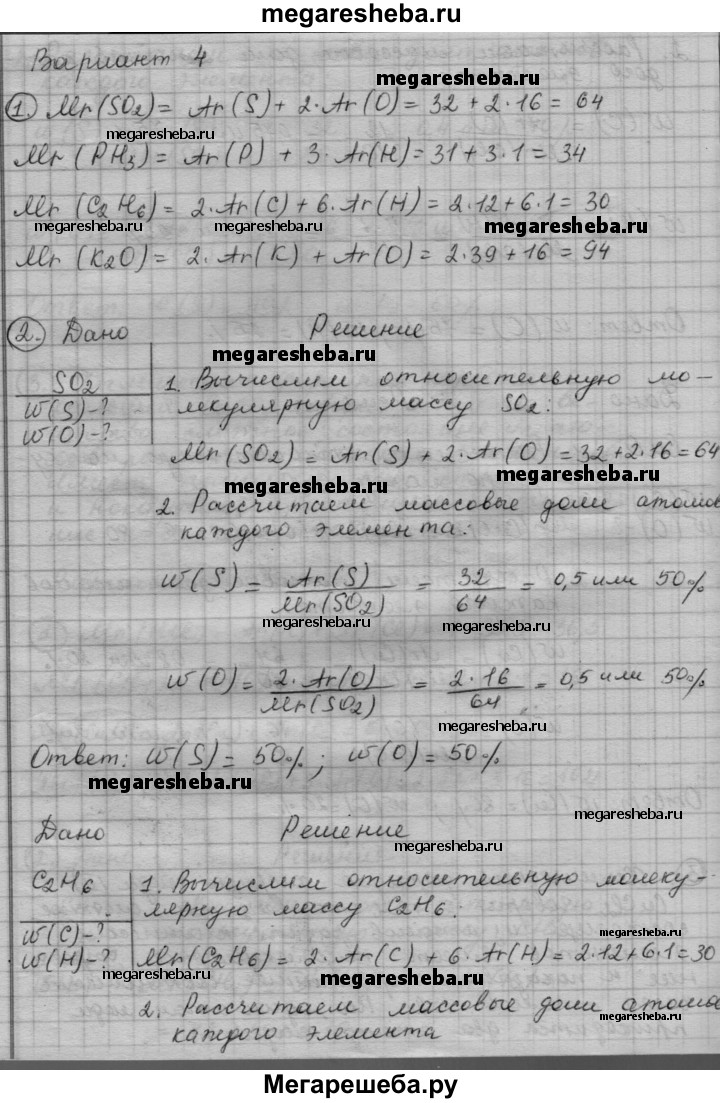 megaresheba.ru
Вариант 4
megaresheba.ru
1. Mr(SO2) = Ar(S) + 2·Ar(O) = 32 + 2·16 = 64
megaresheba.ru
megaresheba.ru
Mr(PH3) = Ar(P) + 3·Ar(H) = 31 + 3·1 = 34
Mr(C2H6) = 2·Ar(C) + 6·Ar(H) = 2·12 + 6·1 = 30
megaresheba.ru
megaresheba.ru
megaresheba.ru
Mr(K2O) = 2·Ar(K) + Ar(O) = 2·39 + 16 = 94
2. Дано Решение
megaresheba.ru
SO2
w(S)-?
w(O)-?
1. Вычислим относительную мо-
лекулярную массу SO2:
megaresheba.ru
megaresheba.ru
Mr(SO2) = Ar(S) + 2·Ar(O) = 32 + 2·16 = 64
megaresheba.ru
megaresheba.ru
2. Рассчитаем массовые доли атомов
каждого элемента:
w(S) = Ar(S) / Mr(SO2) = 32 / 64 = 0,5 или 50%
megaresheba.ru
megaresheba.ru
w(O) = 2·Ar(O) / Mr(SO2) = 2·16 / 64 = 0,5 или 50%
megaresheba.ru
Ответ: w(S) = 50%; w(O) = 50%
megaresheba.ru
megaresheba.ru
Дано Решение
megaresheba.ru
C2H6
w(C)-?
w(H)-?
1. Вычислим относительную молеку-
лярную массу C2H6:
megaresheba.ru
Mr(C2H6) = 2·Ar(C) + 6·Ar(H) = 2·12 + 6·1 = 30
megaresheba.ru
megaresheba.ru
2. Рассчитаем массовые доли атома
megaresheba.ru
каждого элемента
megaresheba.ru
Мегарешеба.ру